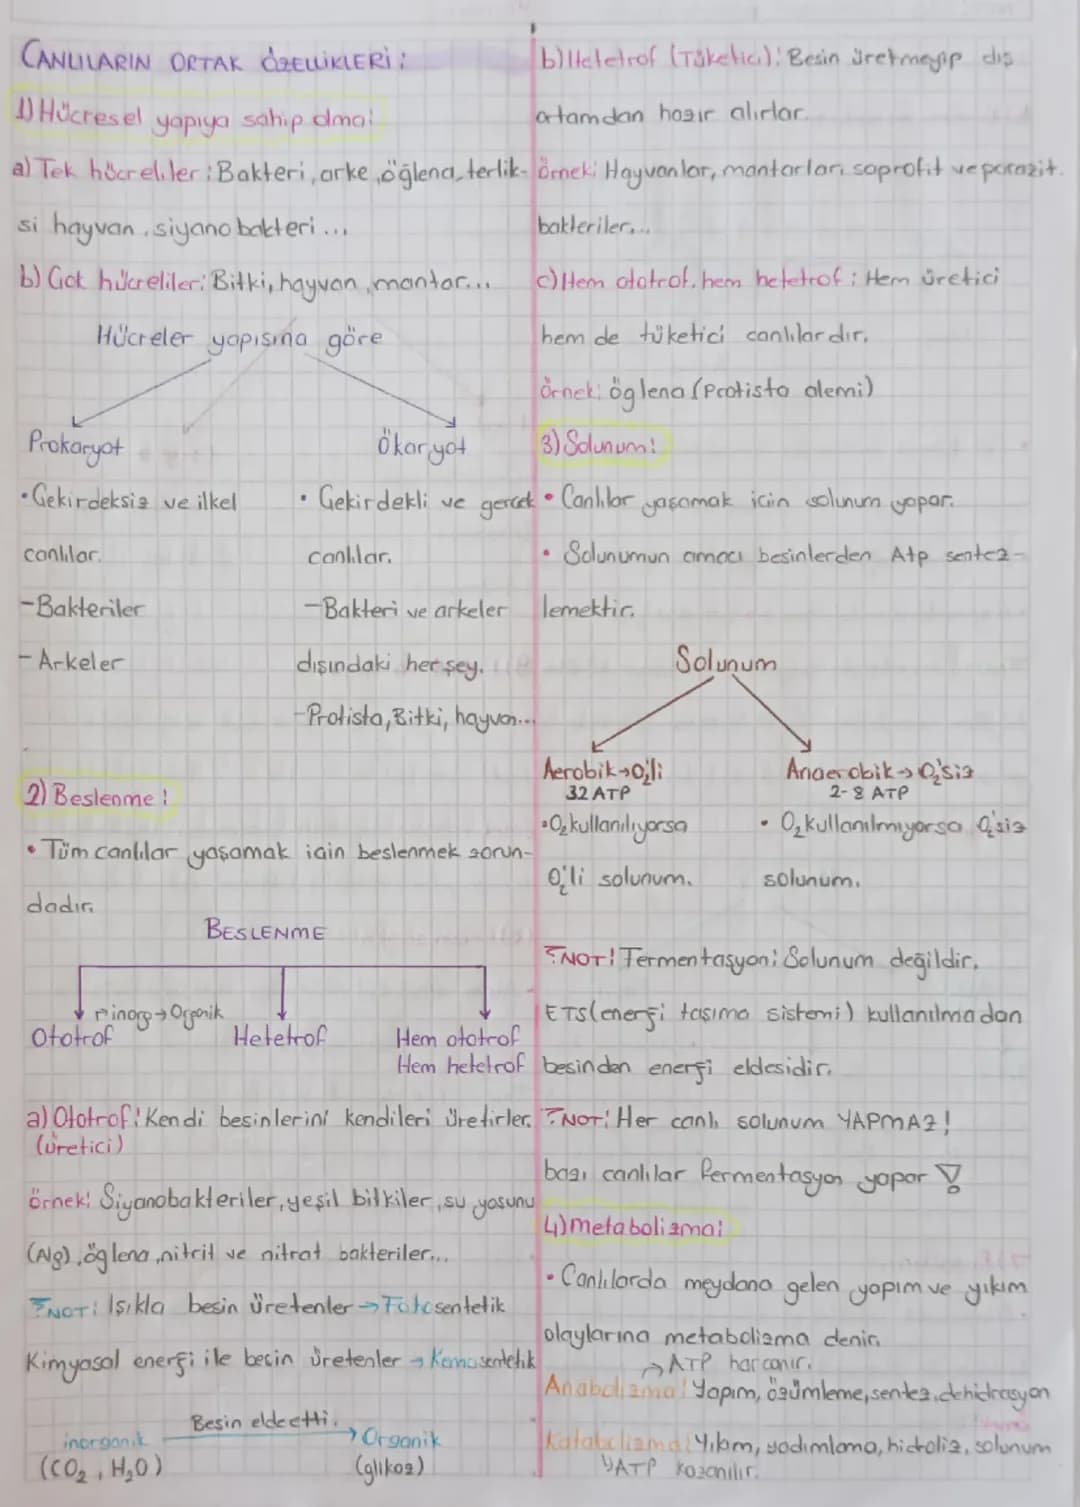 CANLILARIN ORTAK ÖZELLİKLERİ:
1) Hücresel yapıya sahip olma:
a) Tek hücreliler: Bakteri, arke, öğlena, terlik-
si hayvan, siyanobakteri...
b) Çok hücreliler: Bitki, hayvan, mantar...
Hücreler yapısına göre
Prokaryot
Ökaryot
• Çekirdeksiz ve ilkel
canlılar.
-Bakteriler
-Arkeler
• Çekirdekli ve gerçek
canlılar.
-Bakteri ve arkeler
dışındaki her şey.
-Protista, Bitki, hayvan...
2) Beslenme:
• Tüm canlılar yaşamak için beslenmek zorun-
dadır.
BESLENME
inorg→Organik
Ototrof
Hetetrof
Hem ototrof
Hem hetetrof
a) Ototrof: Kendi besinlerini kendileri üretirler.
(üretici)
örnek: Siyanobakteriler, yeşil bitkiler, su yosunu
(Alg), öglena, nitrit ve nitrat bakteriler...
NOT: Işıkla besin üretenler → Fotosentetik
Kimyasal energi ile besin üretenler → Kemosentetik
inorganik Besin elde etti. → Organik
(CO₂, H₂O) (glikoz)
b) Hetetrof (Tüketici): Besin üretmeyip dış
ortamdan hazır alırlar.
örnek: Hayvanlar, mantarlar, saprofit ve parazit.
bakteriler...
c) Hem ototrof, hem hetetrof: Hem üretici
hem de tüketici canlılardır.
örnek: öglena (Protista alemi)
3) Solunum:
• Canlılar yaşamak için solunum yapar.
• Solunumun amacı besinlerden Atp sentez-
lemektir.
Solunum
Aerobik→O₂'li
32 ATP
• O₂ kullanılıyorsa
O₂'li solunum.
Anaerobik→O₂'siz
2-8 ATP
• O₂ kullanılmıyorsa O₂'siz
solunum.
NOT: Fermentasyon: Solunum değildir.
ETS (energi taşıma sistemi) kullanılmadan
besinden energi eldesidir.
NOT: Her canlı solunum YAPMAZ!
bazı canlılar fermentasyon yapar!
4) metabolizma:
• Canlılarda meydana gelen yapım ve yıkım
olaylarına metabolizma denir.
→ATP harcanır.
Anabolizma: Yapım, özümleme, sentez, dehidrasyon
Katabolizma: Yıkım, yadımlama, hidroliz, solunum
ATP kazanılır.